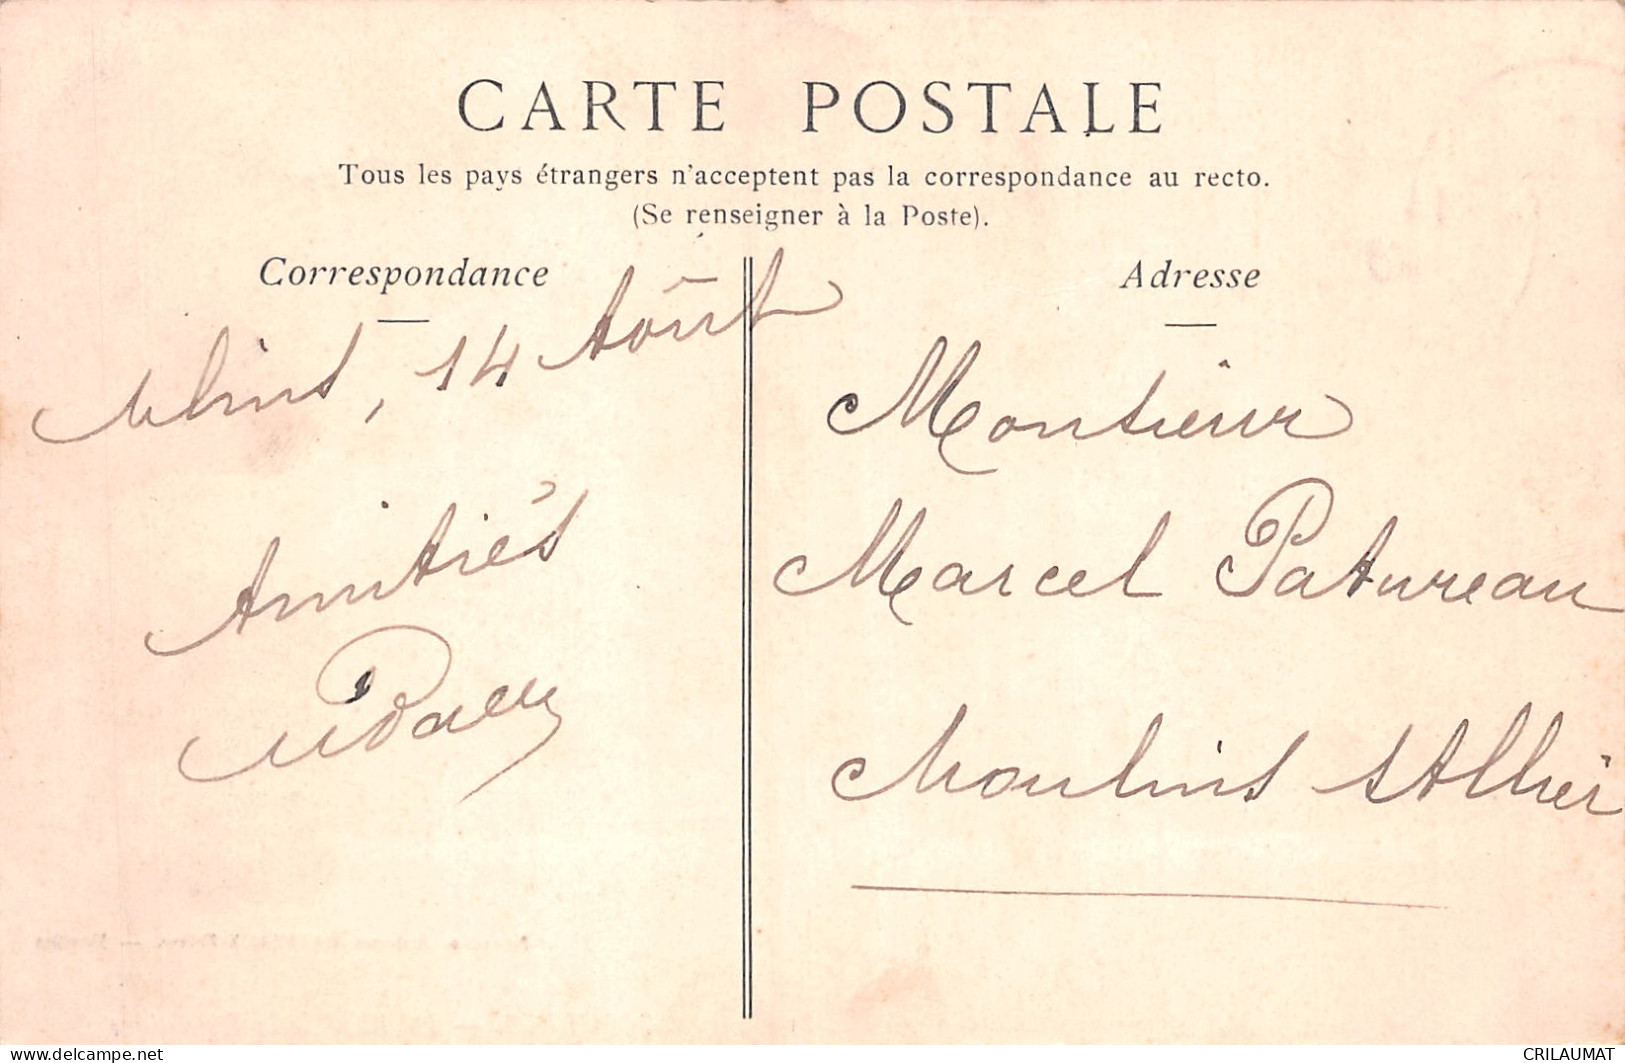 CARTE POSTALE
Tous les pays étrangers n'acceptent pas la correspondance au recto.
(Se renseigner à la Poste).
Correspondance
Adresse
14 Août
Amitiés
Monsieur
Marcel Patureau
Moulins s Allier
www.delcampe.net
CRILAUMAT